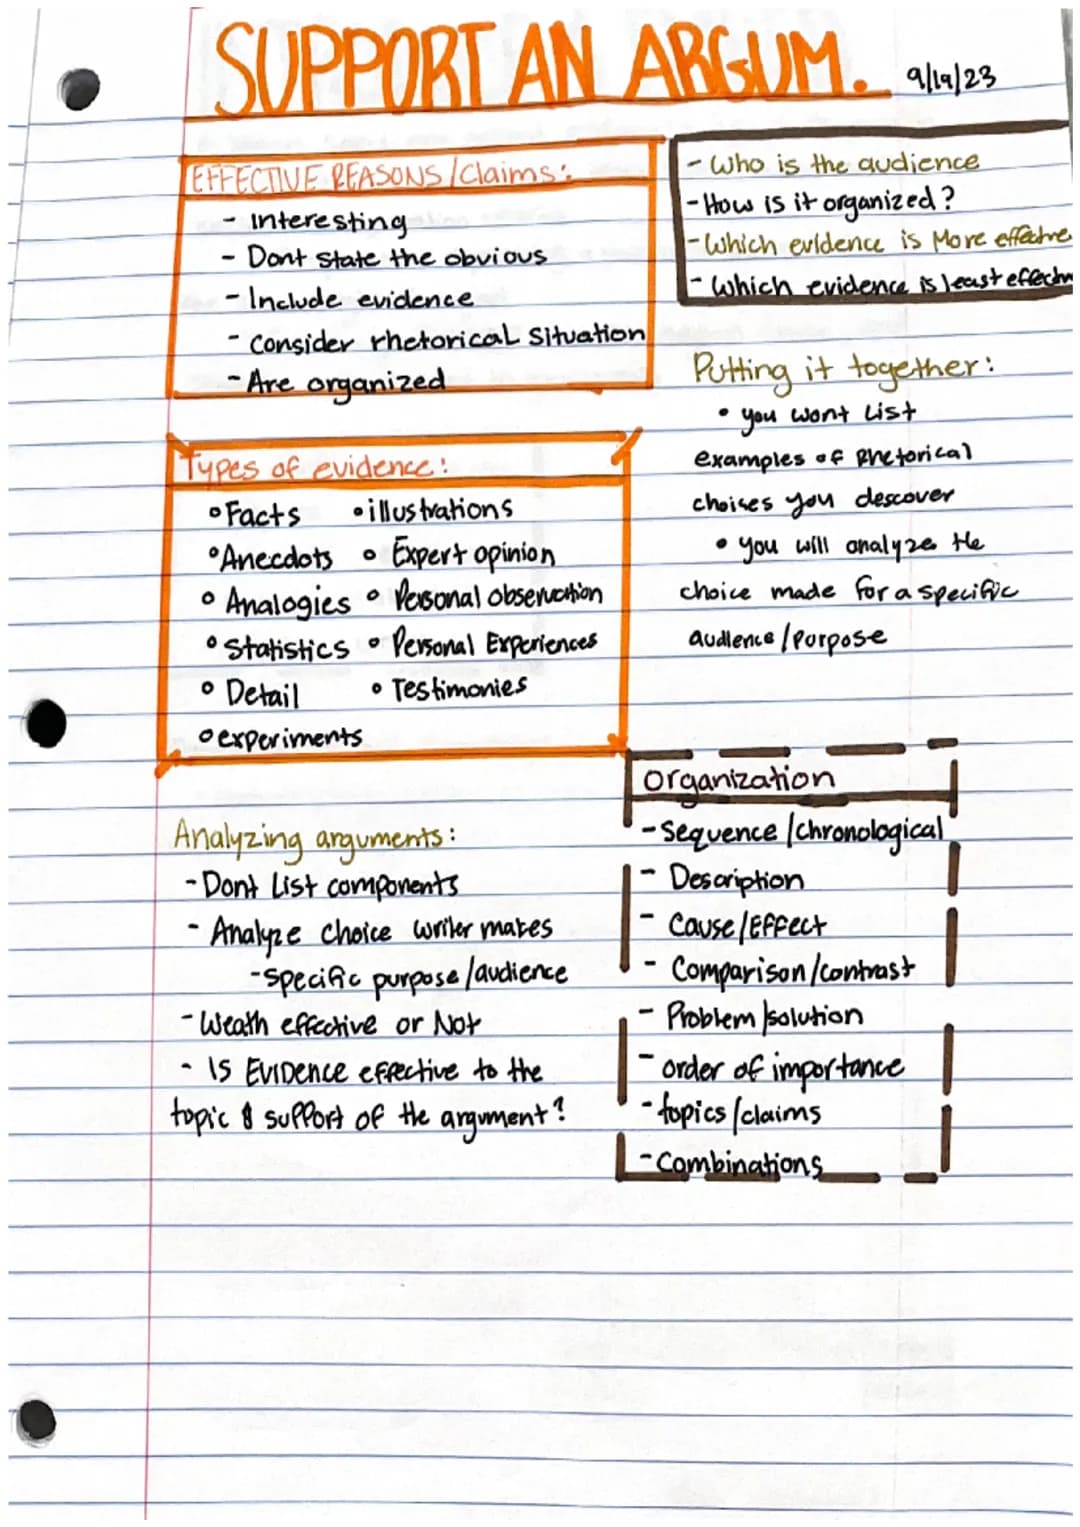 SUPPORT AN ARGUM.
9/19/23
EFFECTIVE REASONS/Claims:
- Interesting
- Dont state the obvious
- Include evidence
- Consider rhetorical Situation
- Are organized
- Who is the audience
- How is it organized?
- Which evidence is More effective
- Which evidence is least effectiv
Putting it together:
• you wont List
examples of rhetorical
choises you descover
• you will analyze the
choice made for a specific
audience/Purpose
Types of evidence:
• Facts • illustrations
• Anecdots • Expert opinion
• Analogies • Personal observation
• Statistics • Personal Experiences
• Detail • Testimonies
• experiments
Analyzing arguments:
- Dont List components
- Analyze choice writer makes
- Specific purpose/audience
- Weath effective or Not
- IS EVIDENCE effective to the
topic & support of the argument?
organization
- Sequence/chronological
- Description
- Cause/Effect
- Comparison/contrast
- Problem/solution
- order of importance
- topics/claims
- Combinations